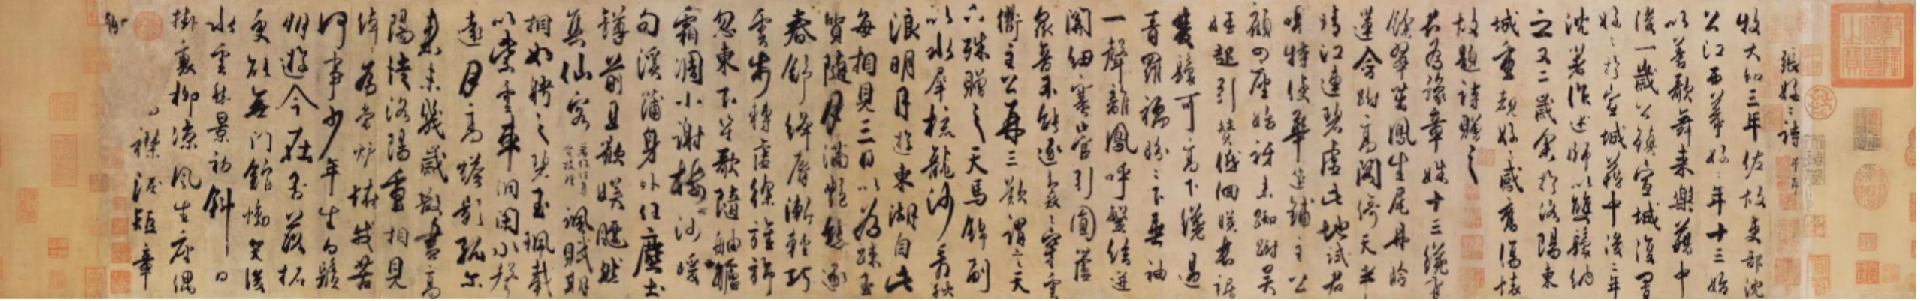 張好好詩并序
牧大和三年佐故吏部沈
公江西幕好好年十三始
以善歌舞来樂籍中
後一歲公鎮宣城復置
好好於宣城籍中後二年
沈著作述師以雙鬟納
之又二歲余於洛陽東
城重覩好好感舊傷懷
故題詩贈之
君為豫章姝十三纔有
餘翠茁鳳生尾丹臉
蓮含跗高閣倚天半
晴江連碧虛此地試君
唱特使華筵鋪主公
顧四座始訝来踟蹰吳
娃起引贊低佪暎長裾
雙鬟可高下纔過
青羅襦盼盼下垂袖
一聲離鳳呼繁絃迸
關紐塞管引圓蘆
衆音不能逐裊裊穿雲
衢主公再三歎謂言天
下殊贈之天馬錦副
以水犀梳龍沙看秋
浪明月遊東湖自此
每相見三日以為疎玉
質隨月滿艷態逐
春舒絳脣漸輕巧
雲步轉虛徐旌旆
忽東下笙歌隨舳艫
霜凋小謝樹沙暖
句溪蒲身外任塵土
罇前且歡娛飄然
集仙客諷賦期
相如聘之碧玉珮載
以紫雲車洞閉水聲
遠月高蟾影孤尔
来未幾歲散盡高
陽徒洛陽重相見
綽為當壚怪我苦
何事少年生白鬚
朋遊今在否落拓
更能無門館慟哭後
水雲愁景初斜日
掛衰柳涼風生座偶
襟洒短章
聊